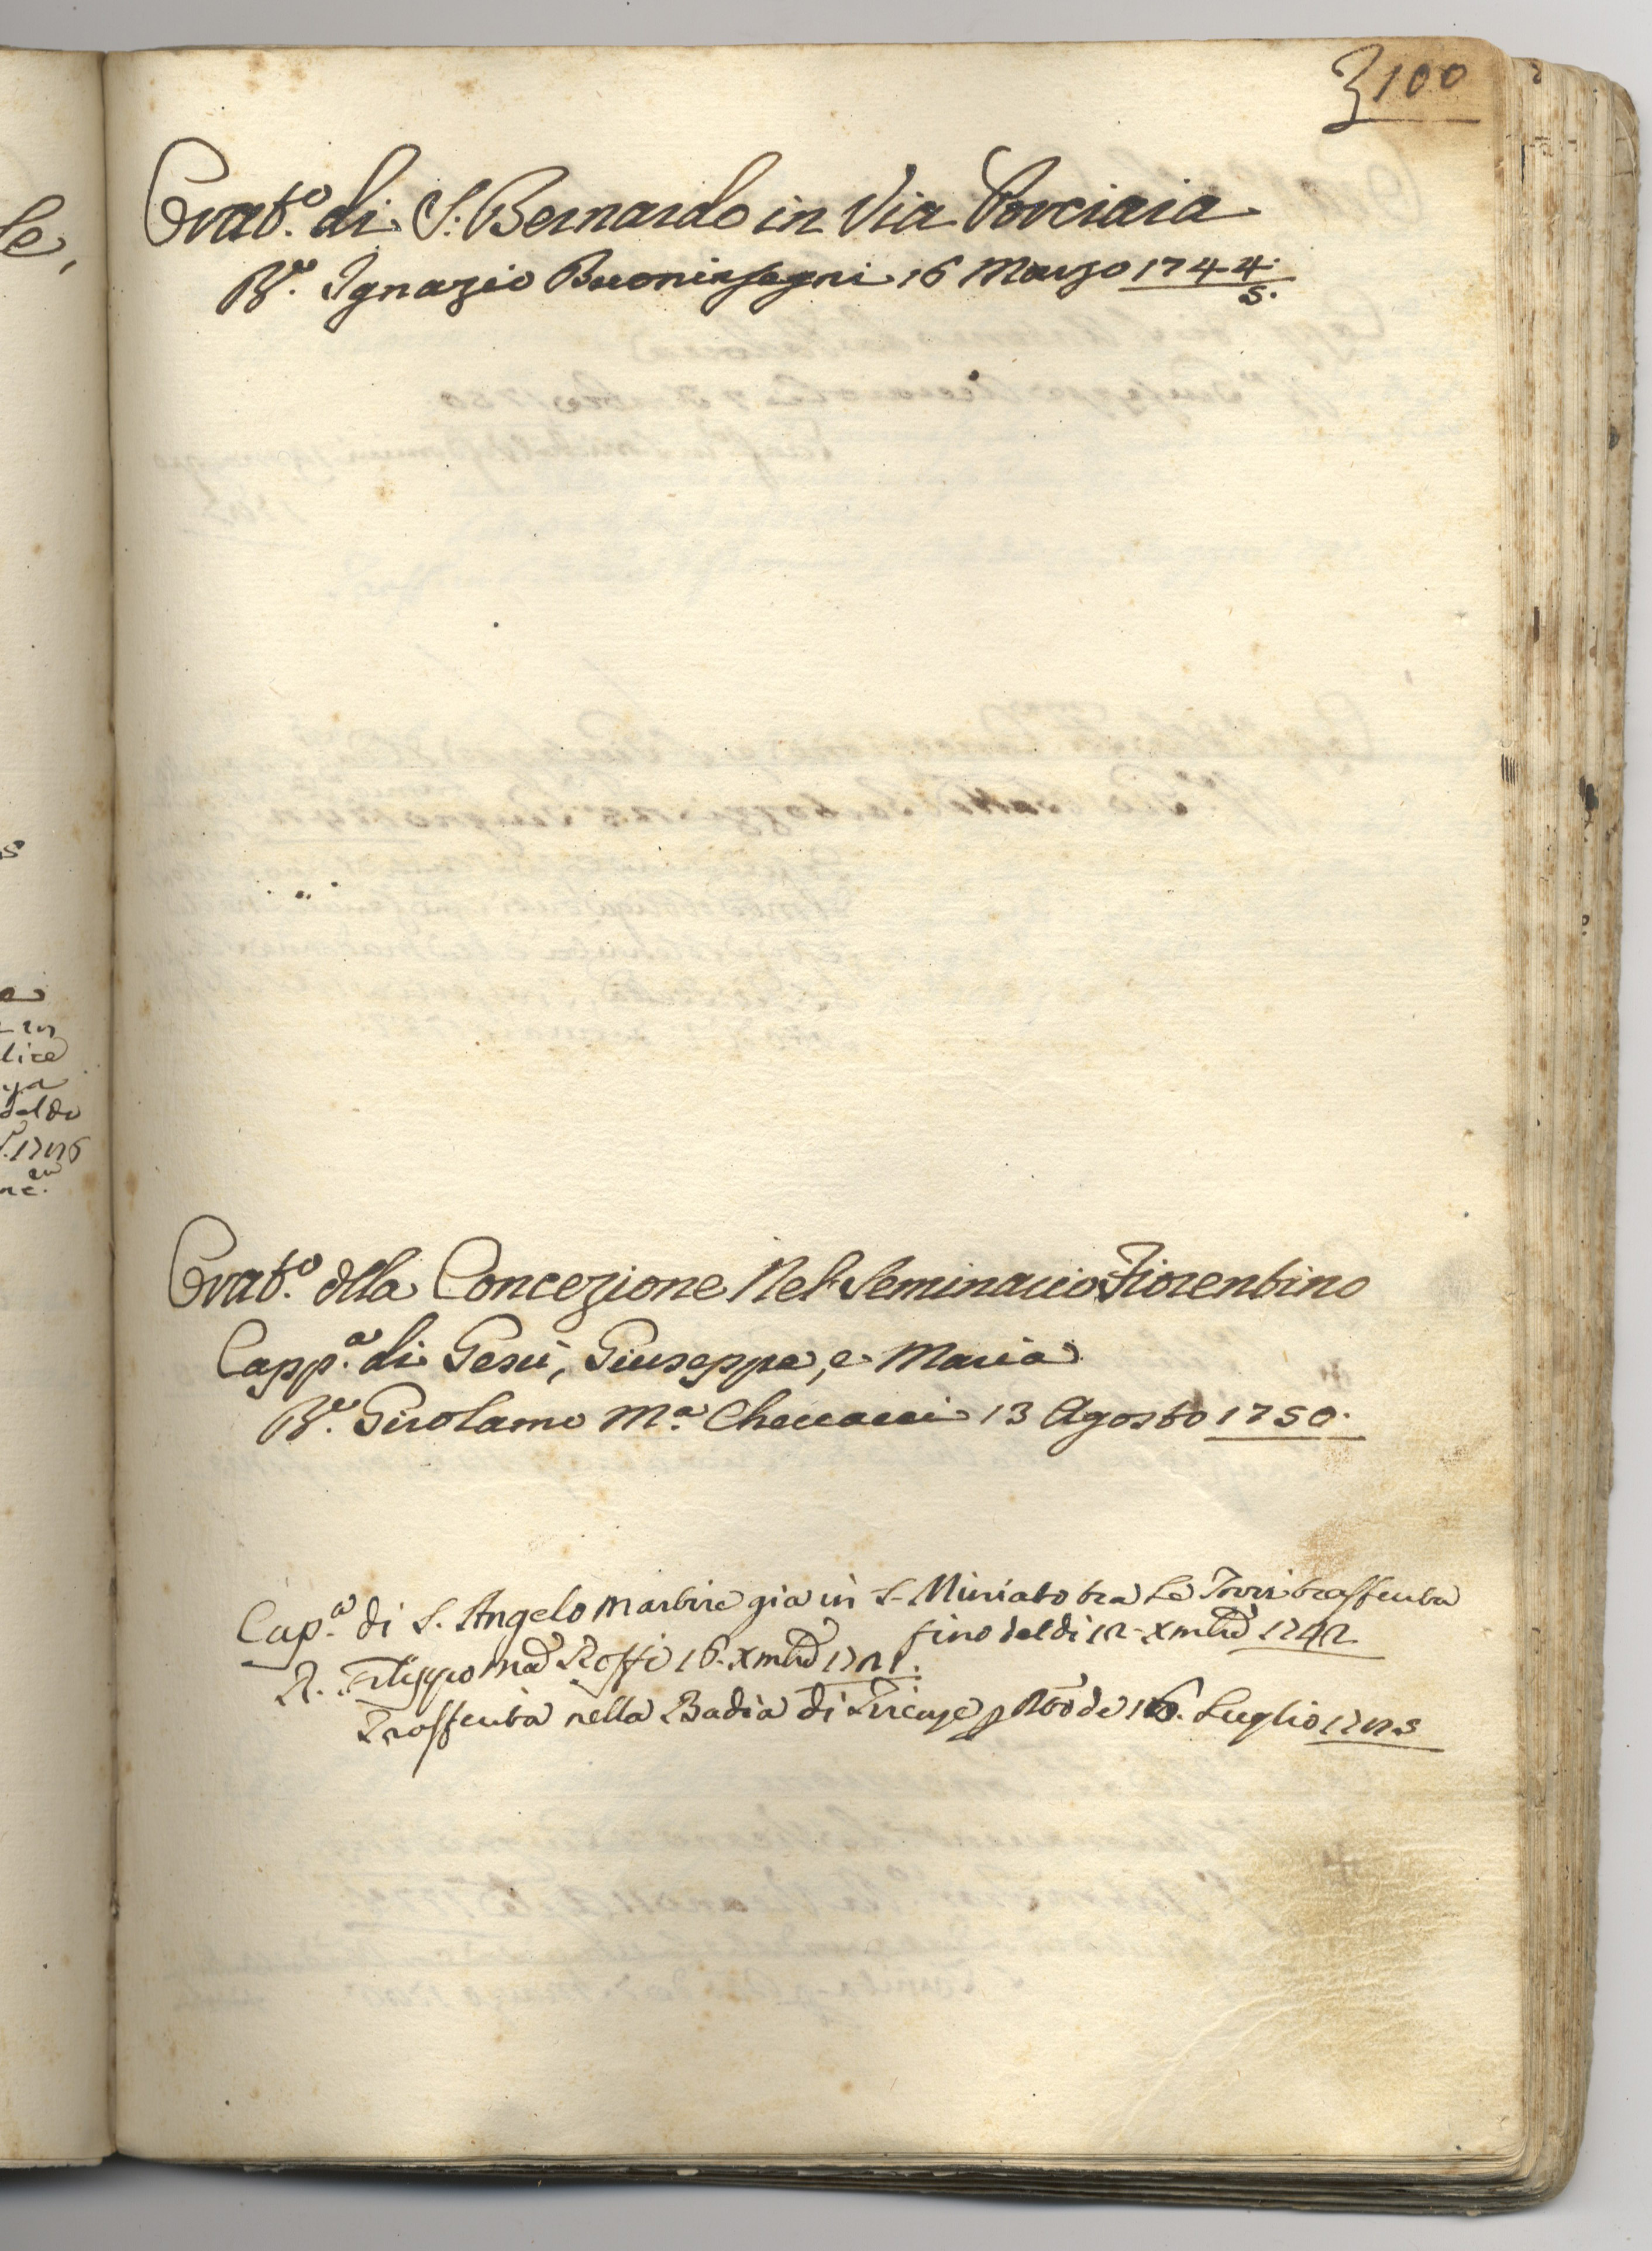 100
Orat.º di S. Bernardo in Via Porciaia
R.e Ignazio Buoninsegni 16 Marzo 1744.
5.
Orat.º dlla Concezione Nel Seminario Fiorentino
Capp.a di Gesù, Giuseppe, e Maria
R.e Girolamo M.a Checcacci 13 Agosto 1750.
Cap.a di S. Angelo Martire già in S. Miniato tra Le Torri trasferita
fino del dì 12. Xmbre 1742
R. Filippo Ma Roffi 16. Xmbre 1721.
Trasferita nella Badia di Firenze p de 16. Luglio